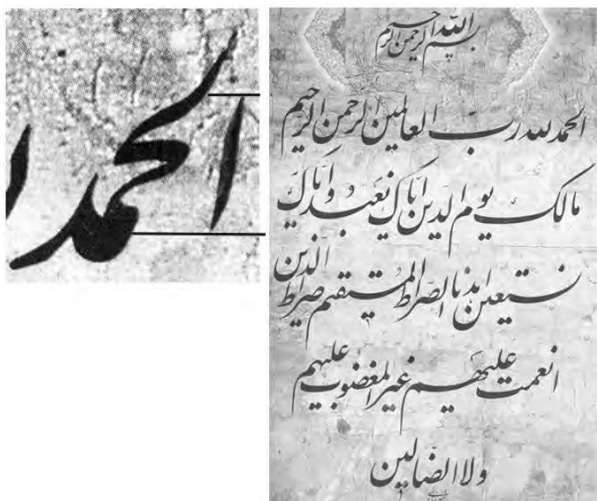 الحمد
بسم الله الرحمن الرحیم
الحمد لله رب العالمین الرحمن الرحیم
مالک یوم الدین ایاک نعبد وایاک
نستعین اهدنا الصراط المستقیم صراط الذین
انعمت علیهم غیر المغضوب علیهم
ولا الضالین